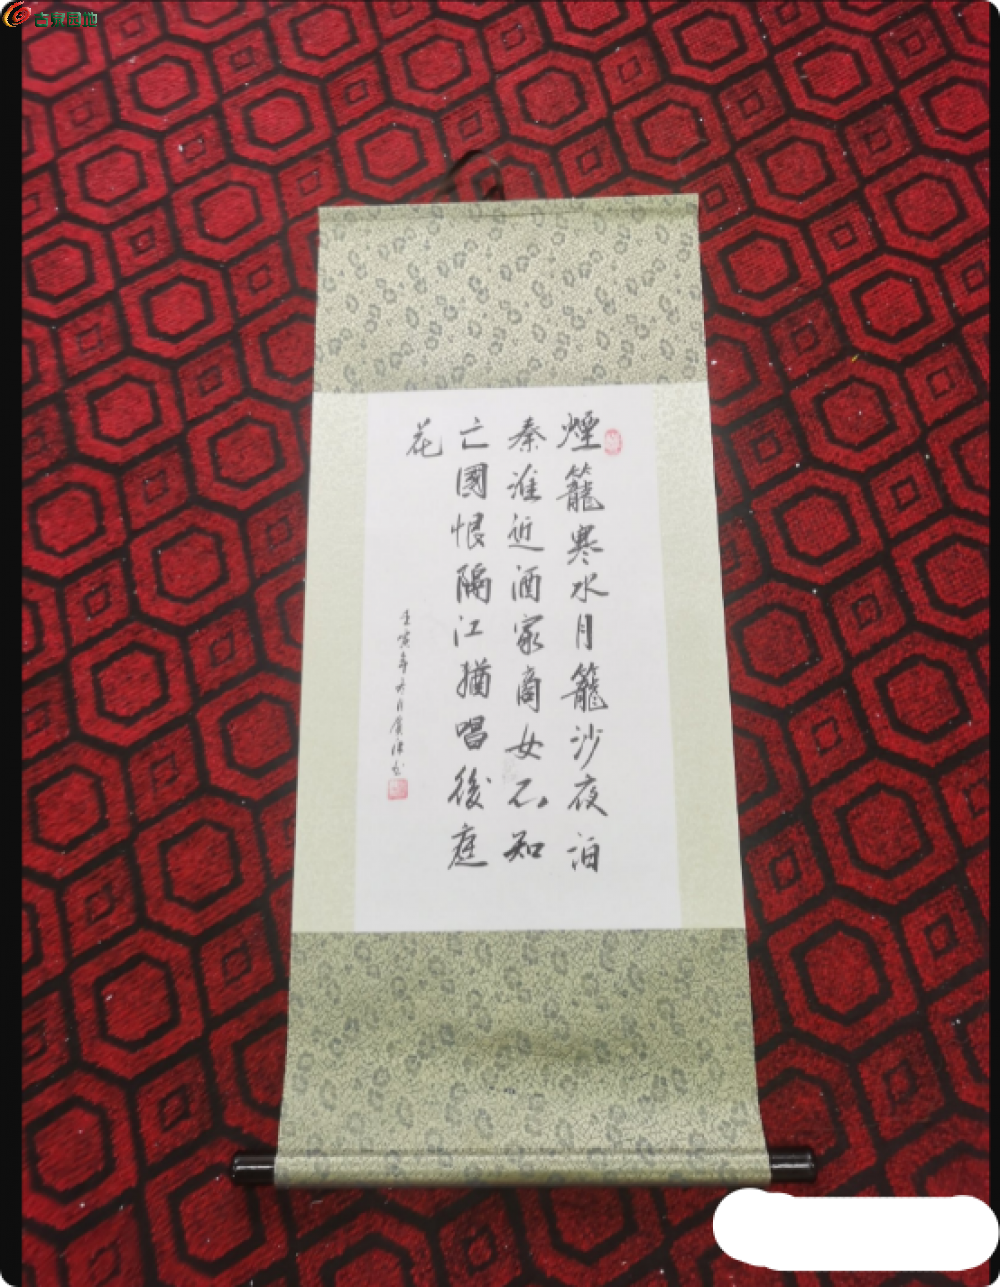 煙籠寒水月籠沙夜泊
秦淮近酒家商女不知
亡國恨隔江猶唱後庭
花
壬寅年